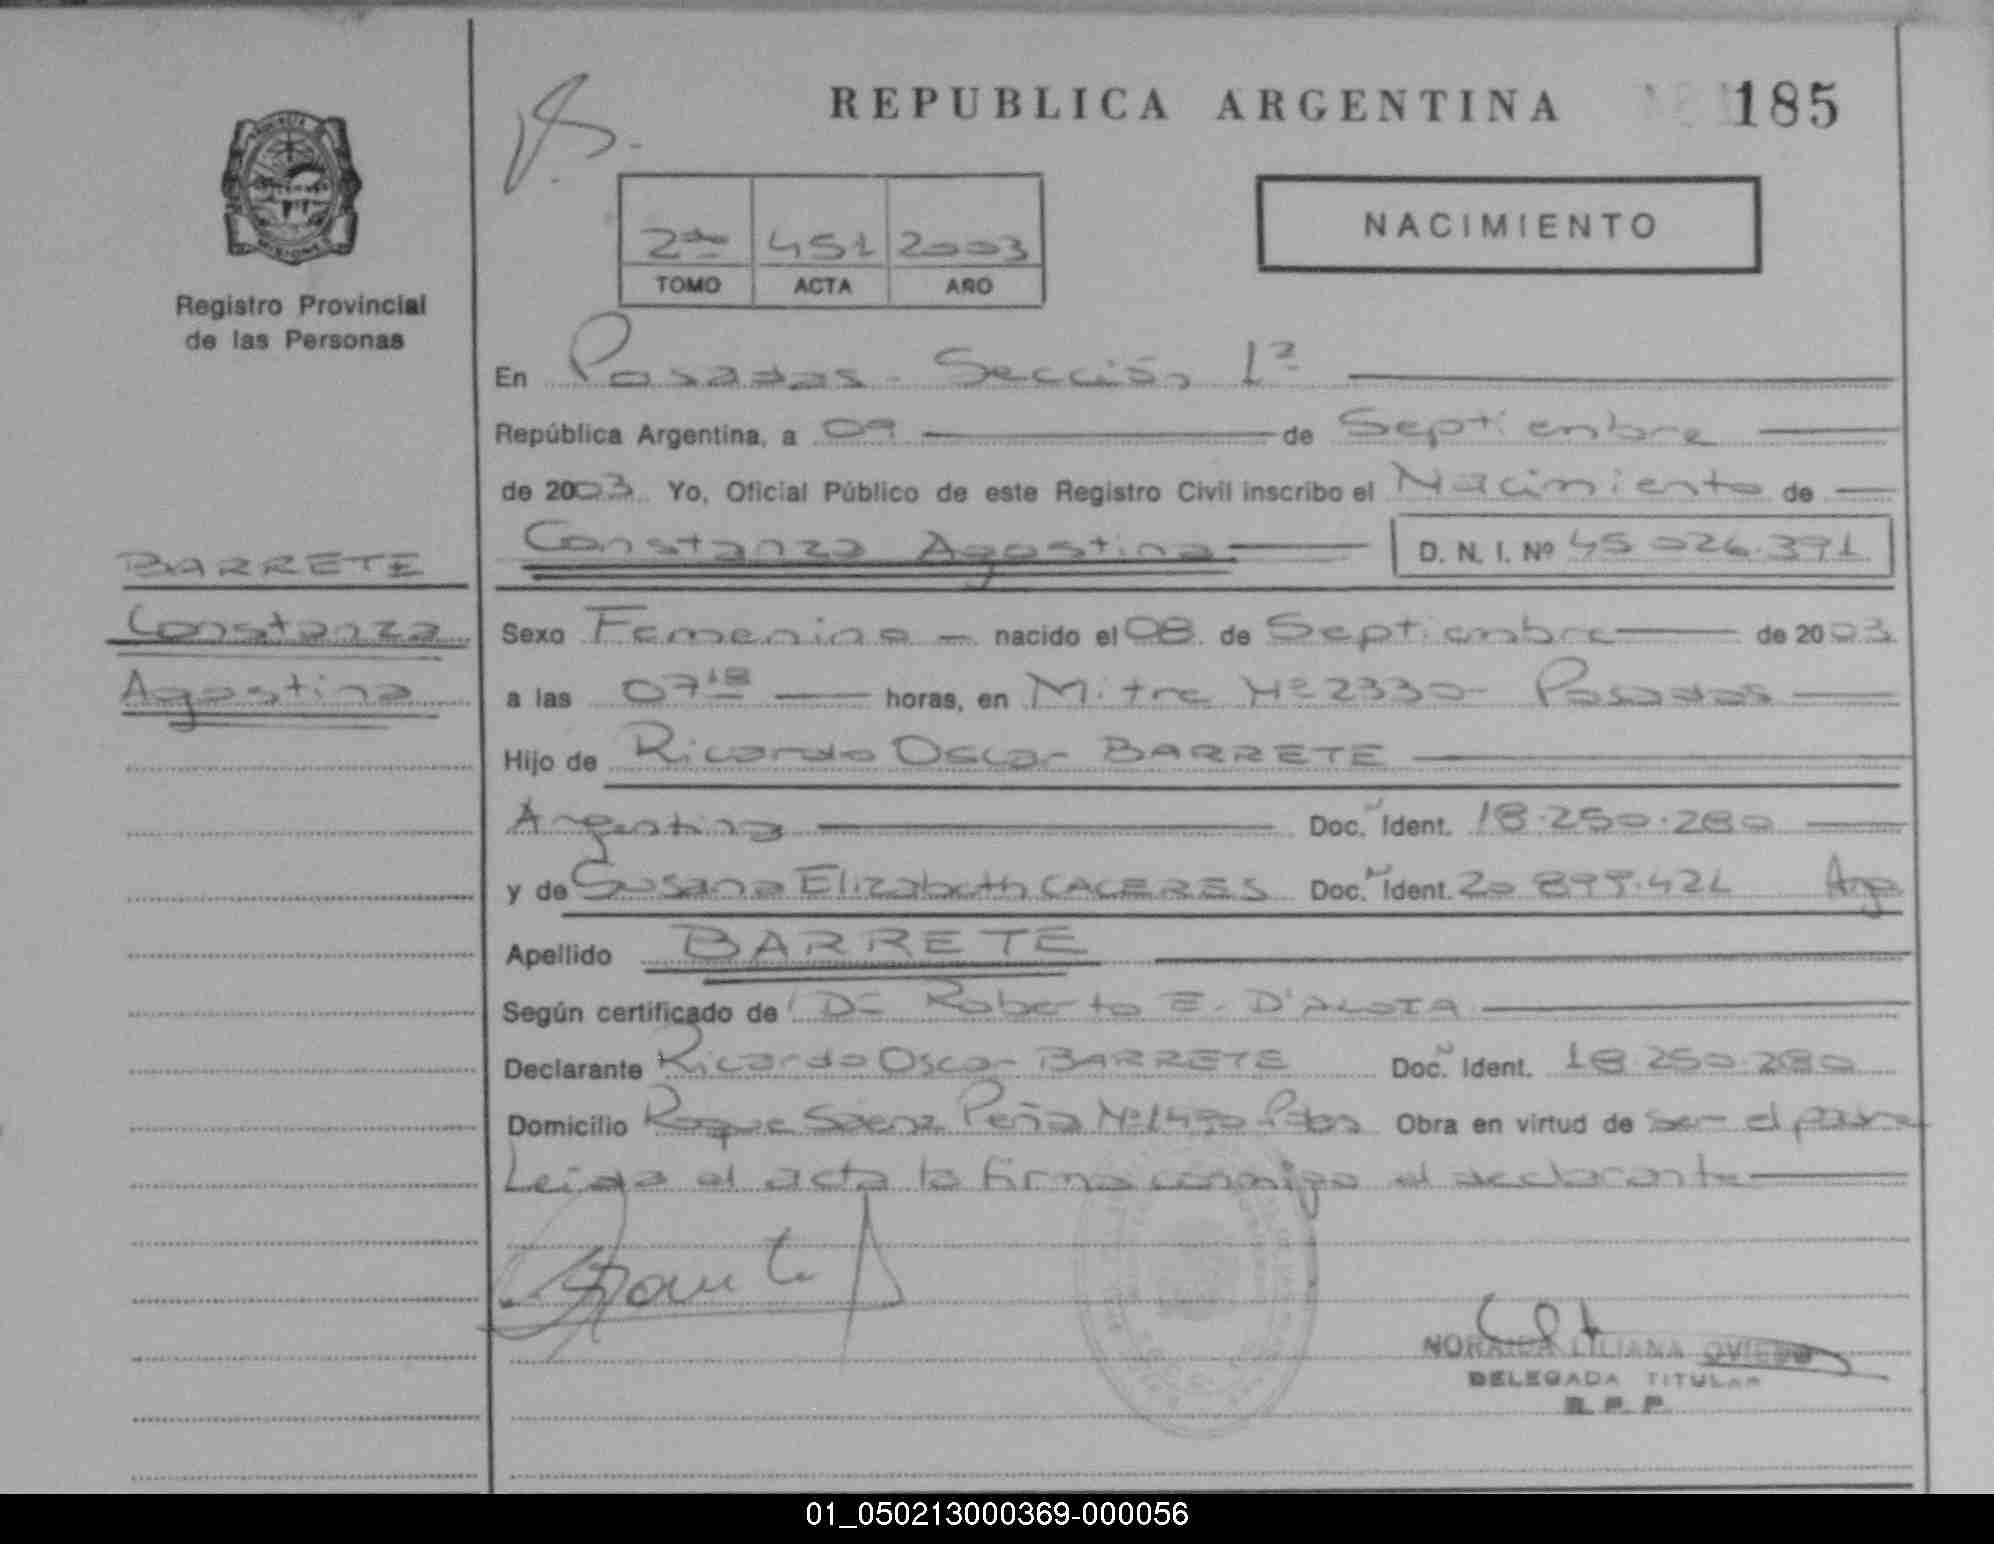 REPUBLICA ARGENTINA 185
NACIMIENTO
2do 451 2003
TOMO ACTA AÑO
Registro Provincial
de las Personas
En Posadas - Sección 1ª
República Argentina, a 09 de Septiembre
de 2003 Yo, Oficial Público de este Registro Civil inscribo el Nacimiento de
Constanza Agostina D. N. I. Nº 45.026.391
BARRETE
Constanza
Agostina
Sexo Femenino nacido el 08 de Septiembre de 2003
a las 07 18 horas, en Mitre Nº 2330 - Posadas
Hijo de Ricardo Oscar BARRETE
Argentino Doc. Ident. 18.250.280
y de Susana Elizabeth CACERES Doc. Ident. 20.899.424 Arg
Apellido BARRETE
Según certificado de Dr Roberto E. D'ALOIA
Declarante Ricardo Oscar BARRETE Doc. Ident. 18.250.280
Domicilio Roque Saenz Peña Nº 1490 Pdas Obra en virtud de ser el padre
Leida el acta la firma conmigo el declarante
NORAIDA LILIANA OVIEDO
DELEGADA TITULAR
R. P. P.
01_050213000369-000056